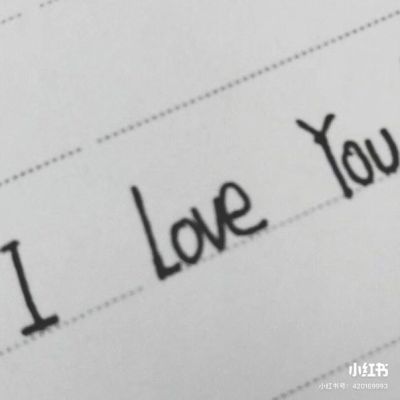 I Love You
小红书
小红书号：420169993